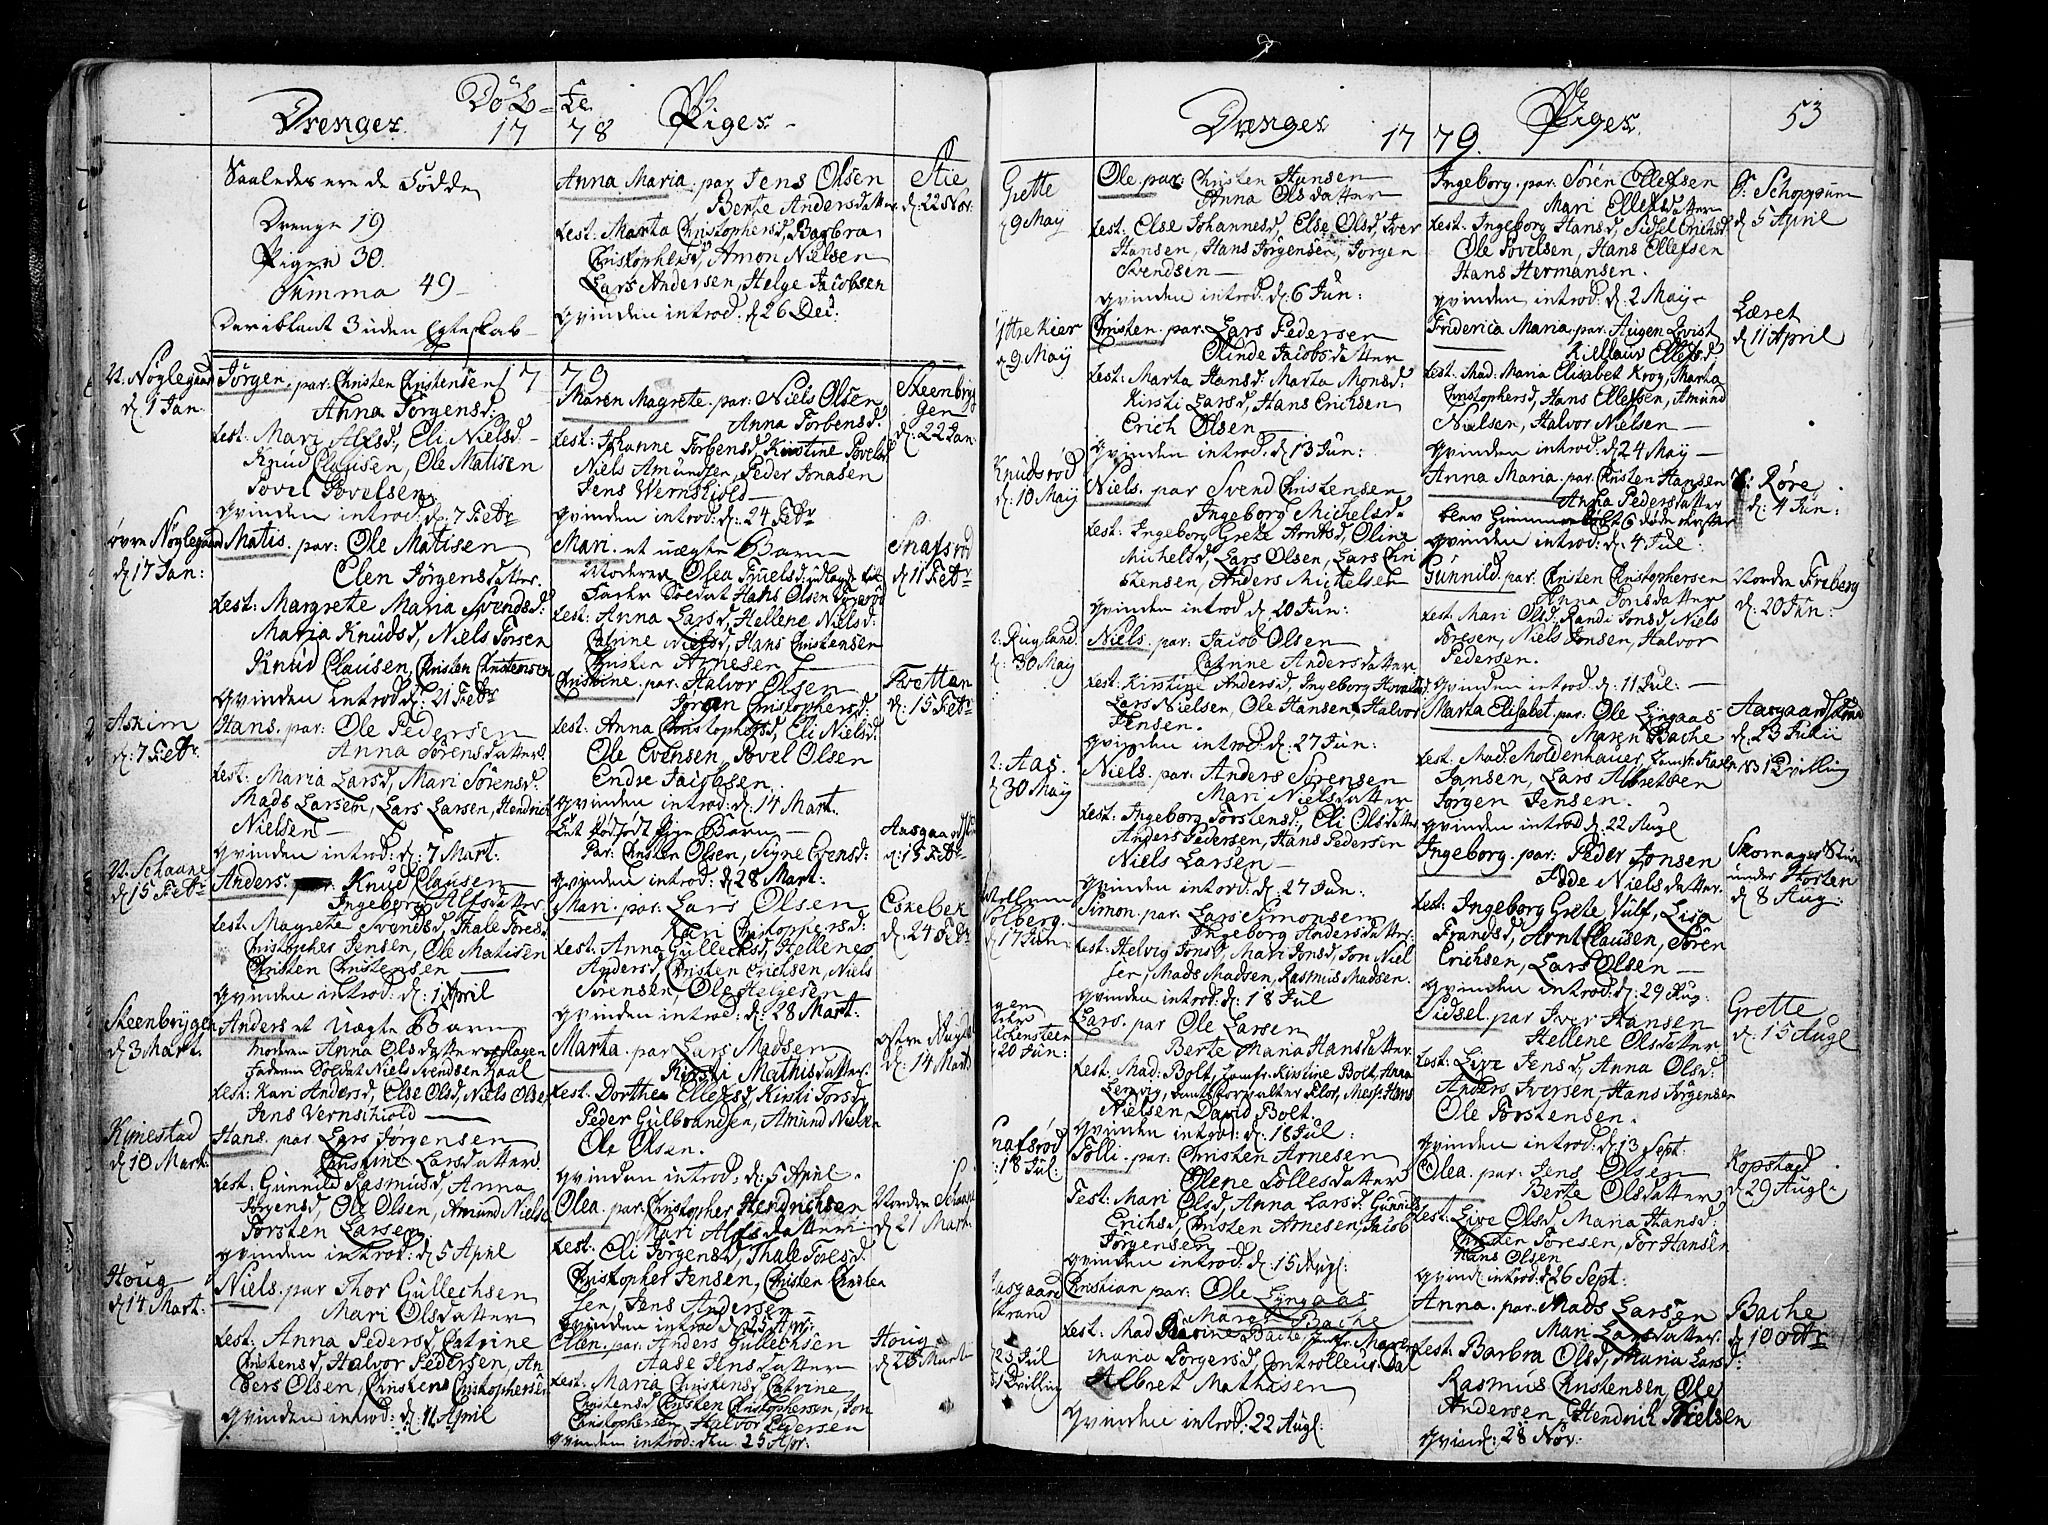 Döb = te
Drenger. 17 78 Piger.
Saaledes ere de Födde
Drenge 19
Piger 30.
Summa 49
Deriblant 3 uden Egteskab
1779
N. Nöglegaard
d. 1 Jan.
Jörgen. par: Christen Christensen
Anna Jörgensd:
test: Mari Alfsd, Eli Nielsd
Knud Clausen, Ole Matisen
Povel Povelsen
qvinden introd: d: 7 Febr
övre Nöglegaard
d. 17 Jan:
Matis. par: Ole Matisen
Elen Jörgensdatter.
test: Margrete Maria Svendsd:
Maria Knudsd, Niels Torsen
Knud Clausen, Christen Christensen
qvinden introd: d: 21 Febr
Askim
d: 7 Febr.
Hans. par: Ole Pedersen
Anna Sörensdatter
test: Maria Larsd, Mari Sörensd:
Mads Larsen, Lars Larsen, Hendrich
Nielsen
qvinden introd: d: 7 Mart:
N. Schaane
d. 15 Febr
Anders. Knud Clausen
Ingeborg Alfsdatter
test: Magrete Svendsd, Thale Toresd
Christopher Jensen, Ole Matisen
Christen Christensen
qvinden introd: d: 1 April
Steenbrygen
d. 3 Mart.
Anders et Uægte Barn
Moderen Anna Olsdatter
faderen Soldat Niels Svendsen
test: Kari Andersd, Else Olsd, Niels Olsen
Jens Vernskiold
Kimestad
d. 10 Mart:
Hans. par Lars Jörgensen
Christine Larsdatter
test: Gunnild Rasmusd, Anna
Jörgensd, Ole Olsen, Amund Nielsen
Torsten Larsen
qvinden introd: d 5 April
Houg
d: 14 Mart:
Niels. par Thor Gullechsen
Mari Olsdatter
test: Anna Pedersd, Catrine
Christensd, Halvor Pedersen, An
ders Olsen, Christen Christophersen
qvinden introd: d: 11 April
Piger
Anna Maria. par Jens Olsen
Berte Andersdatter
test: Marta Christophersd, Barbra
Christophersd, Amon Nielsen
Lars Andersen, Helge Jacobsen
qvinden introd: d 26 Dec:
Stie
d: 22 Nov:
Maren Magrete. par: Niels Olsen
Anna Torbensd:
test: Johanne Torbensd, Kirstine Povelsd
Niels Amundsen, Peder Jonasen
Jens Wernskiold
qvinden introd: d: 24 Febr
Steenbryg
gen
d: 22 Jan:
Mari. et uægte Barn
Moderen Olea Truelsd: udlagt til
Fader Soldat Hans Olsen
test: Anna Larsd, Hellene Nielsd:
Catrine Nielsd, Hans Christensen
Christen Arnesen
Snafsröd
d. 11 Febr
Christine. par. Halvor Olsen
Jören Christophersd.
test: Anna Christophersd, Eli Nielsd.
Ole Evensen, Povel Olsen
Endre Jacobsen
qvinden introd: d: 14 Mart.
Tvetten
d: 15 Febr
Et dödfödt Pige Barn
Par: Christen Olsen, Signe Evensd:
qvinden introd: d 28 Mart:
Aasgaard
d: 15 Febr
Mari. par. Lars Olsen
Karen Christophersd:
test: Anna Gullechsd, Hellene
Andersd, Christen Erichsen, Niels
Sörensen, Ole Helgesen
qvinden introd: d: 28 Mart:
Eskebek
d. 24 Febr
Marta. par Lars Madsen
Kirsti Mathisdatter
test: Dorthea Ellefsd, Kirsti Torsd
Peder Gulbrandsen, Amund Nielsen
Ole Olsen.
qvinden introd: d: 5 April
d: 14 Mart
Olea. par: Christopher Hendrichsen
Mari Alfsdatter
test: Eli Jörgensd, Thale Toresd.
Christopher Jensen, Christen Christen
sen, Jens Andersen
qvinden introd d 25 Apr:
Nordre Schaane
d. 21 Mart:
Ellen. par: Anders Gullechsen
Aase Jensdatter
test: Maria Christensd, Catrine
Christensd, Christen Christophersen, Jon
Christophersen, Halvor Pedersen
qvinden introd: den 25 Apr:
Houg
d: 26 Mart
Drenger 17 79. Piger. 53
Grette
9 May
Ole par Christen Hansen
Anna Olsdatter
test: Else Johannesd, Else Olsd, Iver
Hansen, Hans Jörgensen, Jörgen
Svendsen
qvinden introd: d: 6 Jun:
Yttre Kier
d. 9 May
Christen. par: Lars Pedersen
Olinde Jacobsdatter
test: Marta Hansd: Marta Monsd:
Kirsti Larsd, Hans Erichsen
Erich Olsen
qvinden introd: d 13 Jun:
Knudsröd
d: 10 May
Niels. par Svend Christensen
Ingeborg Michelsd
test: Ingeborg Grete Arntsd, Oline
Michelsd, Lars Olsen, Lars Chri
stensen, Anders Michelsen
qvinden introd d 20 Jun:
Rugland
30 May
Niels. par: Jacob Olsen
Catrine Andersdatter
test: Kirstine Andersd, Ingeborg
Lars Nielsen, Ole Hansen, Halvor
Jensen.
qvinden introd: d: 27 Jun:
Aas
30 May
Niels. par: Anders Sörensen
Mari Nielsdatter
test: Ingeborg Torstensd, Eli Olsdatter
Anders Pedersen, Hans Pedersen
Niels Larsen
qvinden introd: d: 27 Jun:
Solberg
17 Jun
Simon. par: Lars Simonsen
Ingeborg Andersdatter
test: Helvig Jonsd, Mari Jonsd, Jon Niel
sen, Mads Madsen, Rasmus Madsen.
qvinden introd: d: 18 Jul
20 Jun:
Lars. par Ole Larsen
Berte Maria Hansdatter
test: Mad: Bolt, Jomfr: Kirstine Bolt, Anna
Flor, Mess: Hans
Nielsen, David Bolt.
qvinden introd: d: 18 Jul:
18 Jul:
Tolli. par: Christen Arnesen
Olene Tollesdatter
Test: Mari Olsd, Anna Larsd, Gunnild
Erichsd, Christen Arnesen, Jacob
Jörgensen
qvinden introd: d: 15 Augl:
strand
23 Jul
Tvilling
Christian par: Ole Lyngaas
Maren Bache
test: Mad Bache, Jomfr: Maren
Maria Torgersd, Controlleur Dal
Albret Mathisen
qvinden introd: 22 Augl:
Ingeborg. par: Sören Ellefsen
Mari Ellefsdatter
test: Ingeborg Hansd, Sidsel Erichsd
Ole Povelsen, Hans Ellefsen
Hans Hermansen.
qvinden introd: d: 2 May
S: Schoppum
d 5 April
Friderica Maria. par: Augen Qvist
Ellefsd
test: Mad: Maria Elisabet Krog, Marta
Christophersd, Hans Ellefsen, Amund
Nielsen, Halvor Nielsen
qvinden introd: d 24 May
Læret
d. 11 April
Anna Maria. par: Christen Hansen
Anna Pedersdatter
blev
qvinden introd: d: 4 Jul:
Röre
d: 4 Jun:
Gunnild. par: Christen Christophersen
Anna Jonsdatter
test: Mari Olsd, Randi Jonsd, Niels
Toresen, Niels Jensen, Halvor
Pedersen.
qvinden introd: d: 11 Jul:
Nordre Freberg
d: 20 Jun:
Marta Elisabet. par: Ole Lyngaas
Maren Bache
test: Mad: Moldenhauer, Jomfr: Karen
Jansen, Lars Albretsen
Jörgen Jensen.
qvinden introd d: 22 Augl
Aasgaardstrand
d. 23 Julii
Tvilling
Ingeborg. par: Peder Jonsen
Nielsdatter.
test: Ingeborg Grete Vulf, Lisa
Frandsd, Arnt Clausen, Sören
Erichsen, Lars Olsen
qvinden introd: d: 29 Aug:
Skomager
under Horten
d 8 Aug:
Sidsel. par Iver Hansen
Hellene Olsdatter
test: Live Jensd, Anna Olsd:
Anders Iversen, Hans Jörgensen
Ole Torstensen.
qvinden introd: d 13 Sept:
Grette
d. 15 Augl
Olea. par: Jens Olsen
Berte Olsdatter
test: Live Olsd, Maria Hansd:
Christen Toresen, Tor Hansen
Hans Olsen
qvind. introd: d 26 Sept:
Kopstad
d 29 Augl:
Anna. par: Mads Larsen
Mari Larsdatter.
test: Barbra Olsd, Maria Larsd:
Rasmus Christensen, Ole
Andersen, Hendrik Nielsen
qvind: 28 Nov:
Bache
d. 10 octr